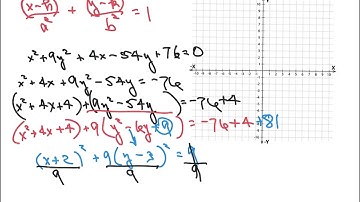 (x-h)²/a² + (y-k)²/b² = 1
x² + 9y² + 4x - 54y + 76 = 0
x² + 4x + 9y² - 54y = -76
(x² + 4x + 4) + (9y² - 54y ) = -76 + 4
(x² + 4x + 4) + 9(y² - 6y + 9) = -76 + 4 + 81
(x+2)²/9 + 9(y-3)²/9 = 9/9